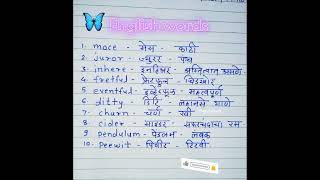 English words
1. mace - मेस - काठी
2. juror - ज्युरर - पंच
3. inhere - इनहिअर - अस्तित्वात असणे
4. fretful - फ्रेटफूल - चिडखोर
5. eventful - इव्हेंटफूल - महत्वपूर्ण
6. ditty - डिटि - लहानसे गाणे
7. churn - चर्न - रवी
8. cider - साइडर - सफरचंदाचा रस
9. pendulum - पेंडुलम - लंबक
10. peewit - पिविट - टिटवी